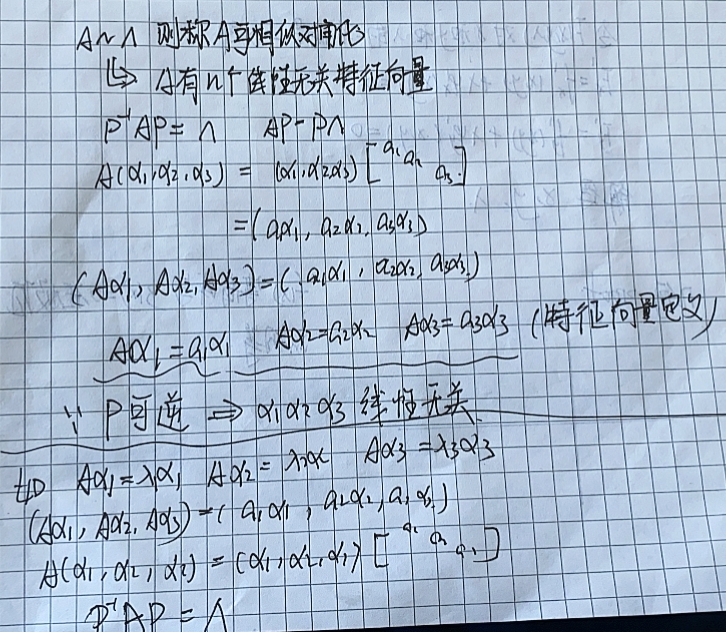 A~Λ 则称A可相似对角化
↳ A有n个线性无关特征向量
P⁻¹AP=Λ AP=PΛ
A(α₁,α₂,α₃) = (α₁,α₂α₃)[a₁ a₂ a₃]
=(a₁α₁, a₂α₂, a₃α₃)
(Aα₁, Aα₂, Aα₃)=(a₁α₁, a₂α₂, a₃α₃)
Aα₁=a₁α₁ Aα₂=a₂α₂ Aα₃=a₃α₃ (特征向量定义)
∵ P可逆 ⇒ α₁α₂α₃ 线性无关
Aα₁=λα₁ Aα₂=λ₂α Aα₃=λ₃α₃
(Aα₁, Aα₂, Aα₃)=(a₁α₁, a₂α₂, a₃α₃)
A(α₁,α₂,α₃)=(α₁,α₂,α₃)[a₁ a₂ a₃]
P⁻¹AP=Λ